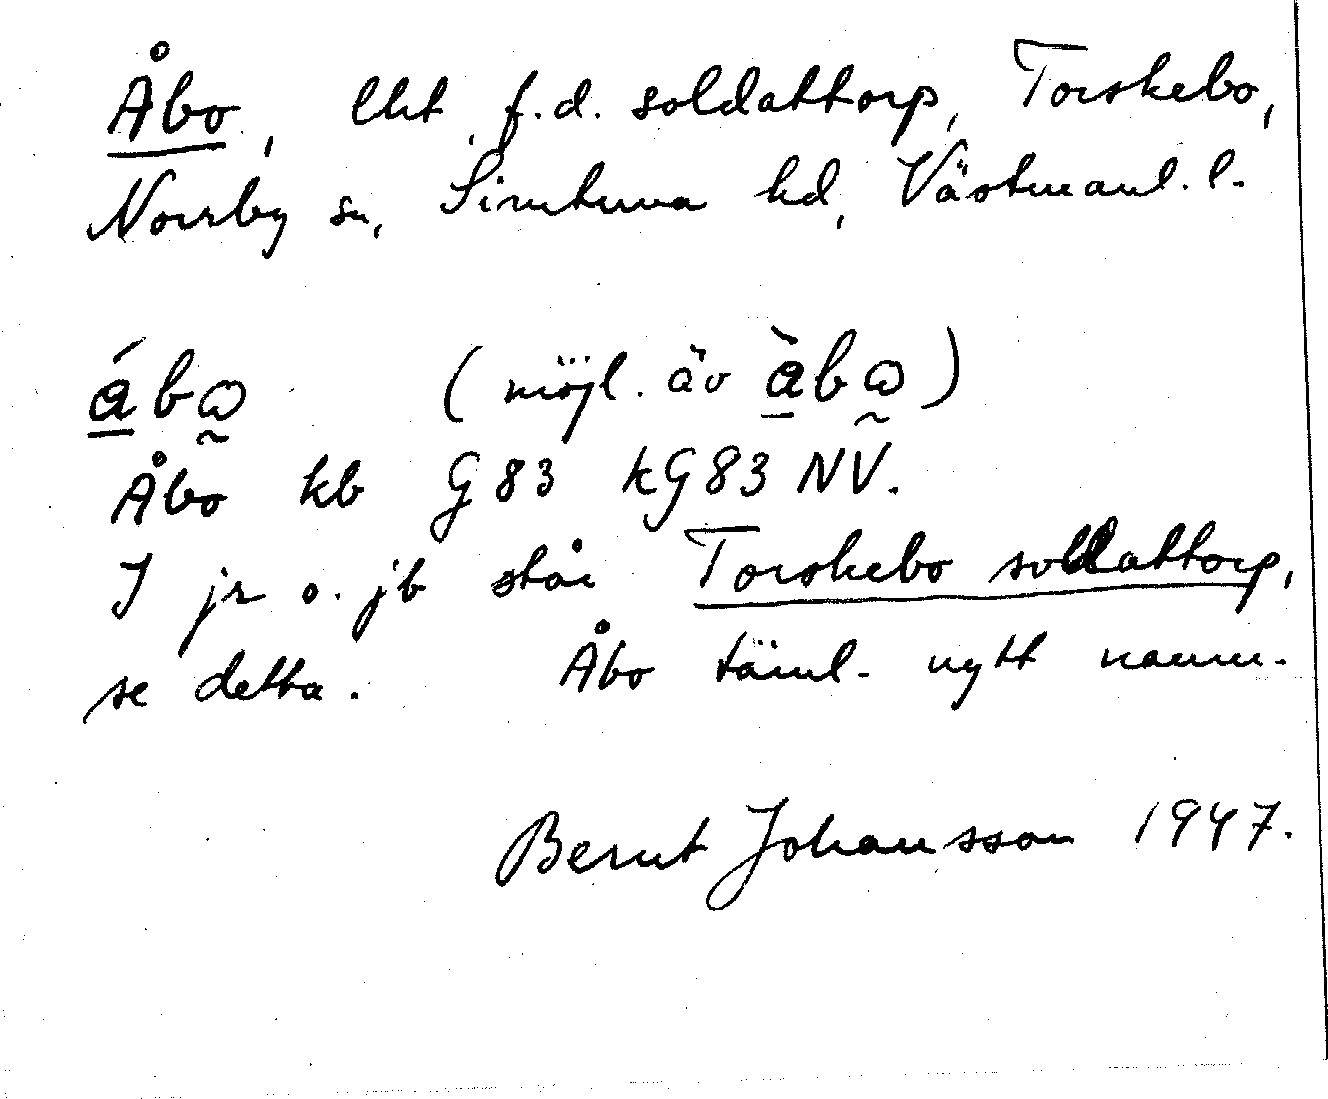 Åbo, lht, f.d. soldattorp, Torskebo,
Norrby sn, Simtuna hd, Västmanl. l.
ábɷ (möjl. äv àbɷ)
Åbo kb G83 kG83 NV.
I jr o. jb står Torskebo soldattorp,
se detta. Åbo täml. nytt namn.
Bernt Johansson 1947.